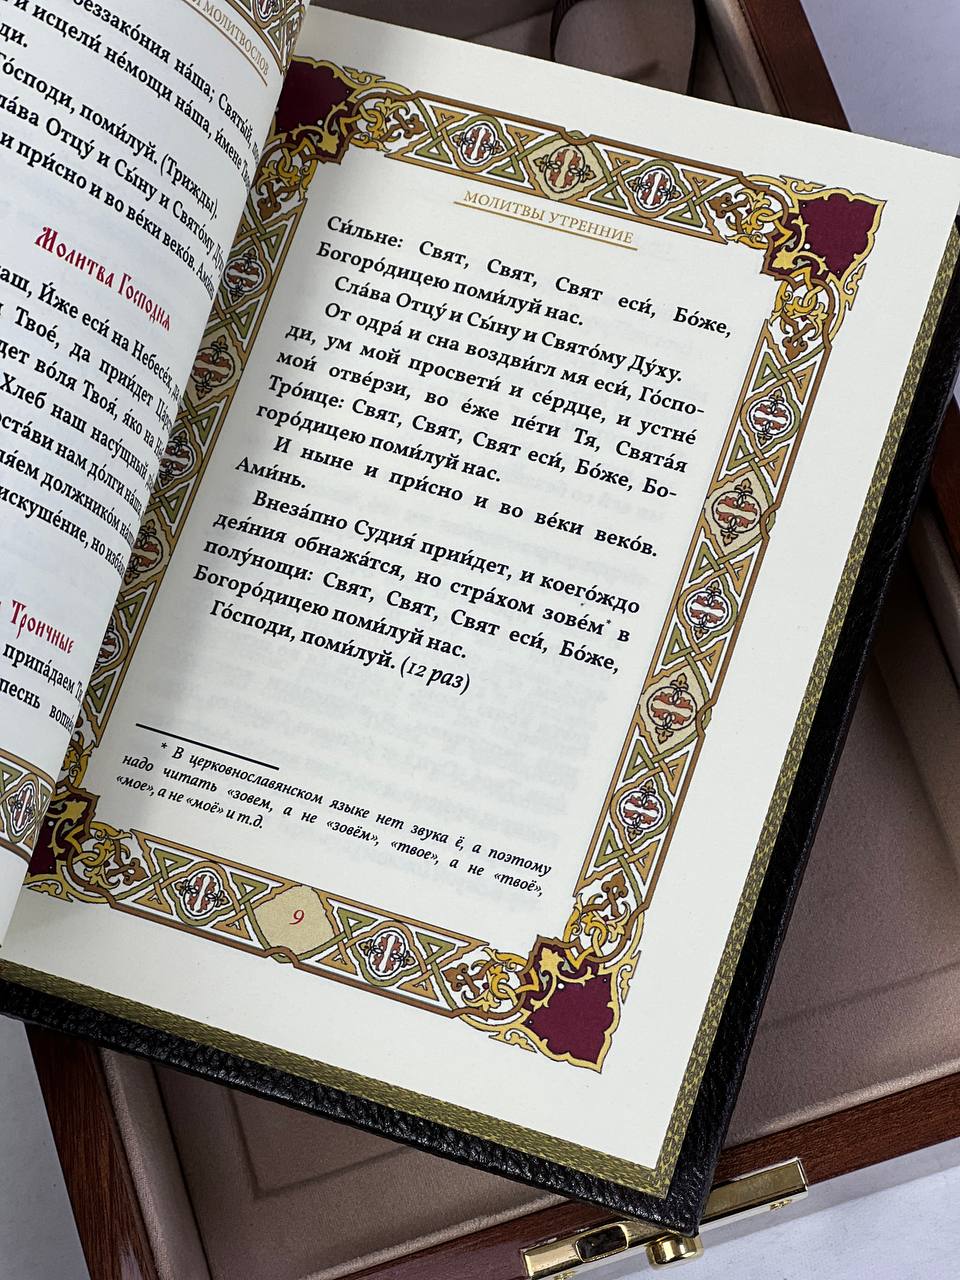 МОЛИТВОСЛОВ
беззако́ния на́ша; Святы́й,
и исцели́ не́мощи на́ша, и́мене
ди.
Го́споди, поми́луй. (Трижды).
Сла́ва Отцу́ и Сы́ну и Свято́му
и при́сно и во ве́ки веко́в. Ами́нь.
Молитва Господня
наш, И́же еси́ на Небесе́х, да
Твое́, да прии́дет
во́ля Твоя́, я́ко на
Хлеб наш насу́щный
оста́ви нам до́лги на́ша,
должнико́м
искуше́ние, но
Троичные
припа́даем
песнь
МОЛИТВЫ УТРЕННИЕ
Си́льне: Свят, Свят, Свят еси́, Бо́же,
Богоро́дицею поми́луй нас.
Сла́ва Отцу́ и Сы́ну и Свято́му Ду́ху.
От одра́ и сна воздви́гл мя еси́, Го́спо-
ди, ум мой просвети́ и се́рдце, и устне́
мои́ отве́рзи, во е́же пе́ти Тя, Свята́я
Тро́ице: Свят, Свят, Свят еси́, Бо́же, Бо-
горо́дицею поми́луй нас.
И ныне и при́сно и во ве́ки веко́в.
Ами́нь.
Внеза́пно Судия́ прии́дет, и коего́ждо
дея́ния обнажа́тся, но стра́хом зове́м* в
полу́нощи: Свят, Свят, Свят еси́, Бо́же,
Богоро́дицею поми́луй нас.
Го́споди, поми́луй. (12 раз)
* В церковнославянском языке нет звука ё, а поэтому
надо читать «зовем, а не «зовём», «твое», а не «твоё»,
«мое», а не «моё» и т.д.
9